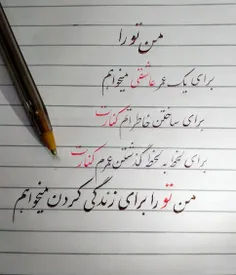 من تو را
برای یک عمر عاشقی میخواهم
برای ساختن خاطراتم کنارت
برای لحظه به لحظه گذشتن عمرم کنارت
من تو را برای زندگی کردن میخواهم